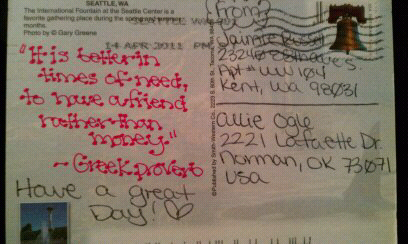 SEATTLE, WA
The International Fountain at the Seattle Center is a
favorite gathering place during the spring and summer
months.
Photo by © Gary Greene
14 APR 2011 PM
"It is better in
times of need,
to have a friend
rather than
money."
- Greek proverb
Have a great
Day!
(From)
Apt # WW104
Kent, WA 98031
Allie Ogle
2221 Lafayette Dr.
Norman, OK 73071
USA